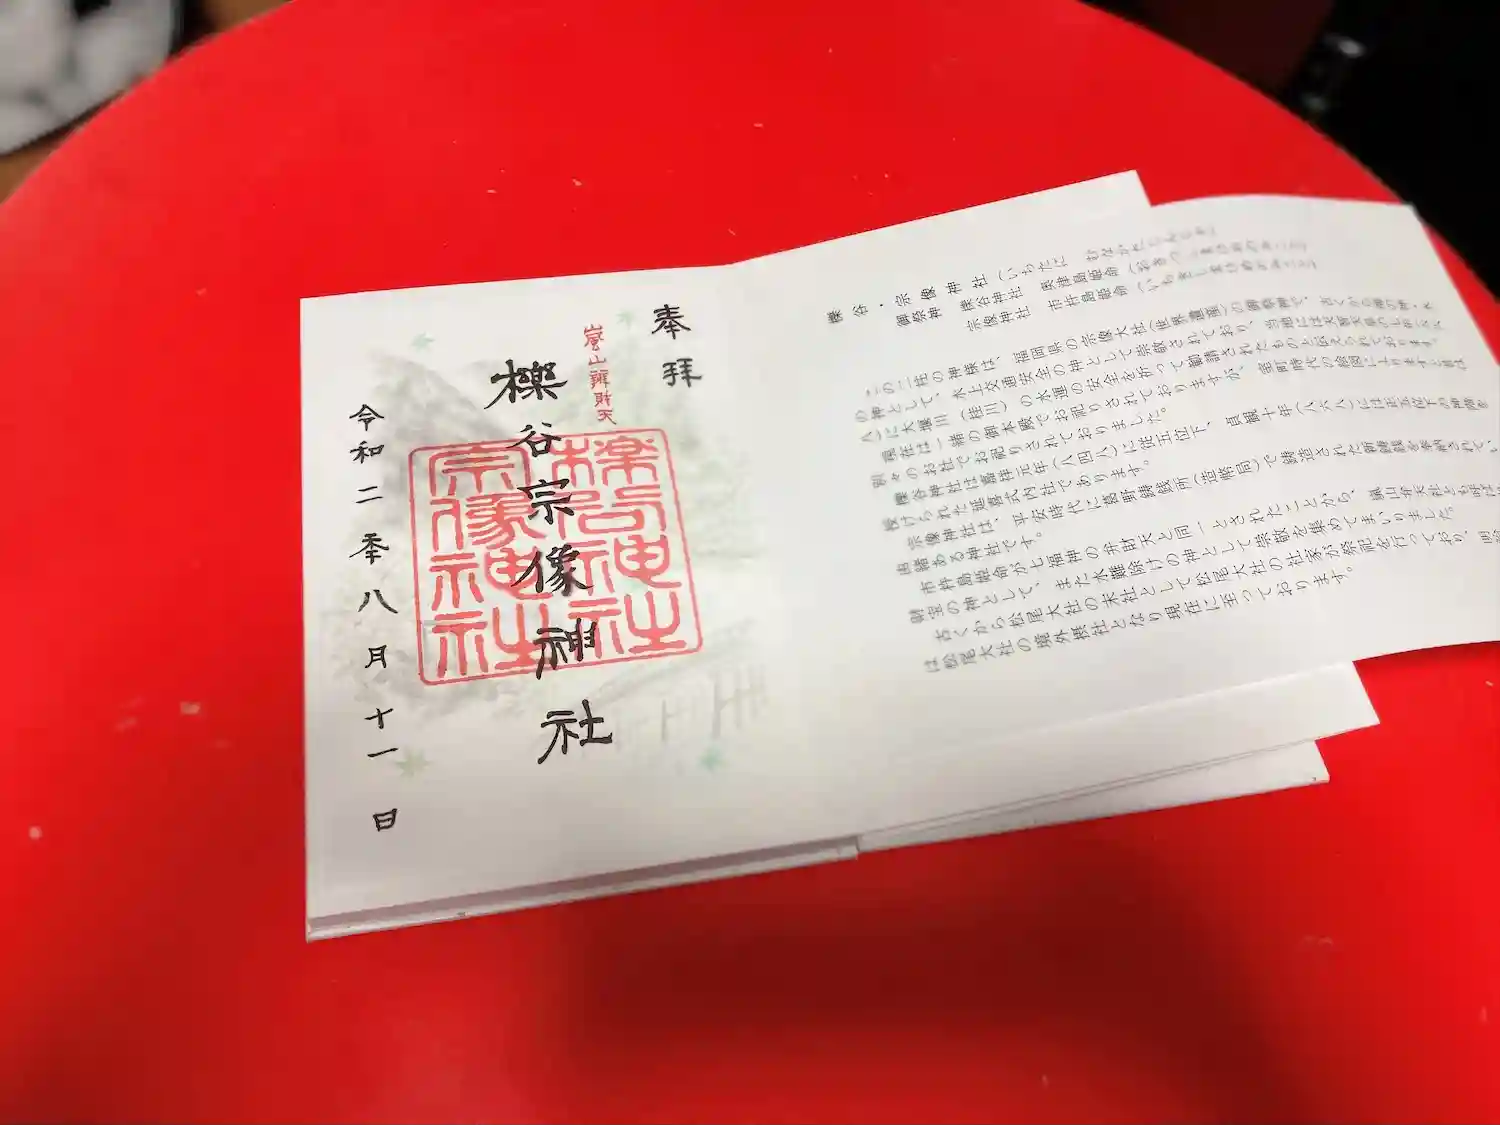 奉拝
嵐山辨財天
櫟谷宗像神社
櫟谷神社
宗像神社
令和二年八月十一日
櫟谷・宗像神社(いちたに むなかたじんじゃ)
御祭神 櫟谷神社 奥津島姫命(おきつしまひめのみこと)
宗像神社 市杵島姫命(いちきしまひめのみこと)
この二柱の神様は、福岡県の宗像大社(世界遺産)の御祭神で、古くから海の神・水
の神として、水上交通安全の神として崇敬されており、当地には天智天皇の七年(六六
八)に大堰川(桂川)の水運の安全を祈って勧請されたものと伝えられております。
現在は一緒の御本殿でお祀りされておりますが、室町時代の絵図によりますと昔は
別々のお社でお祀りされておりました。
櫟谷神社は嘉祥元年(八四八)に従五位下、貞観十年(八六八)には正五位下の神階を
授けられた延喜式内社であります。
宗像神社は、平安時代に葛野鋳銭所(造幣局)で鋳造された新鋳銭を奉納されてい
由緒ある神社です。
市杵島姫命が七福神の弁財天と同一とされたことから、嵐山弁天社とも呼ば
財宝の神として、また水難除けの神として崇敬を集めてまいりました。
古くから松尾大社の末社として松尾大社の社家が祭祀を行っており、
は松尾大社の境外摂社となり現在に至っております。